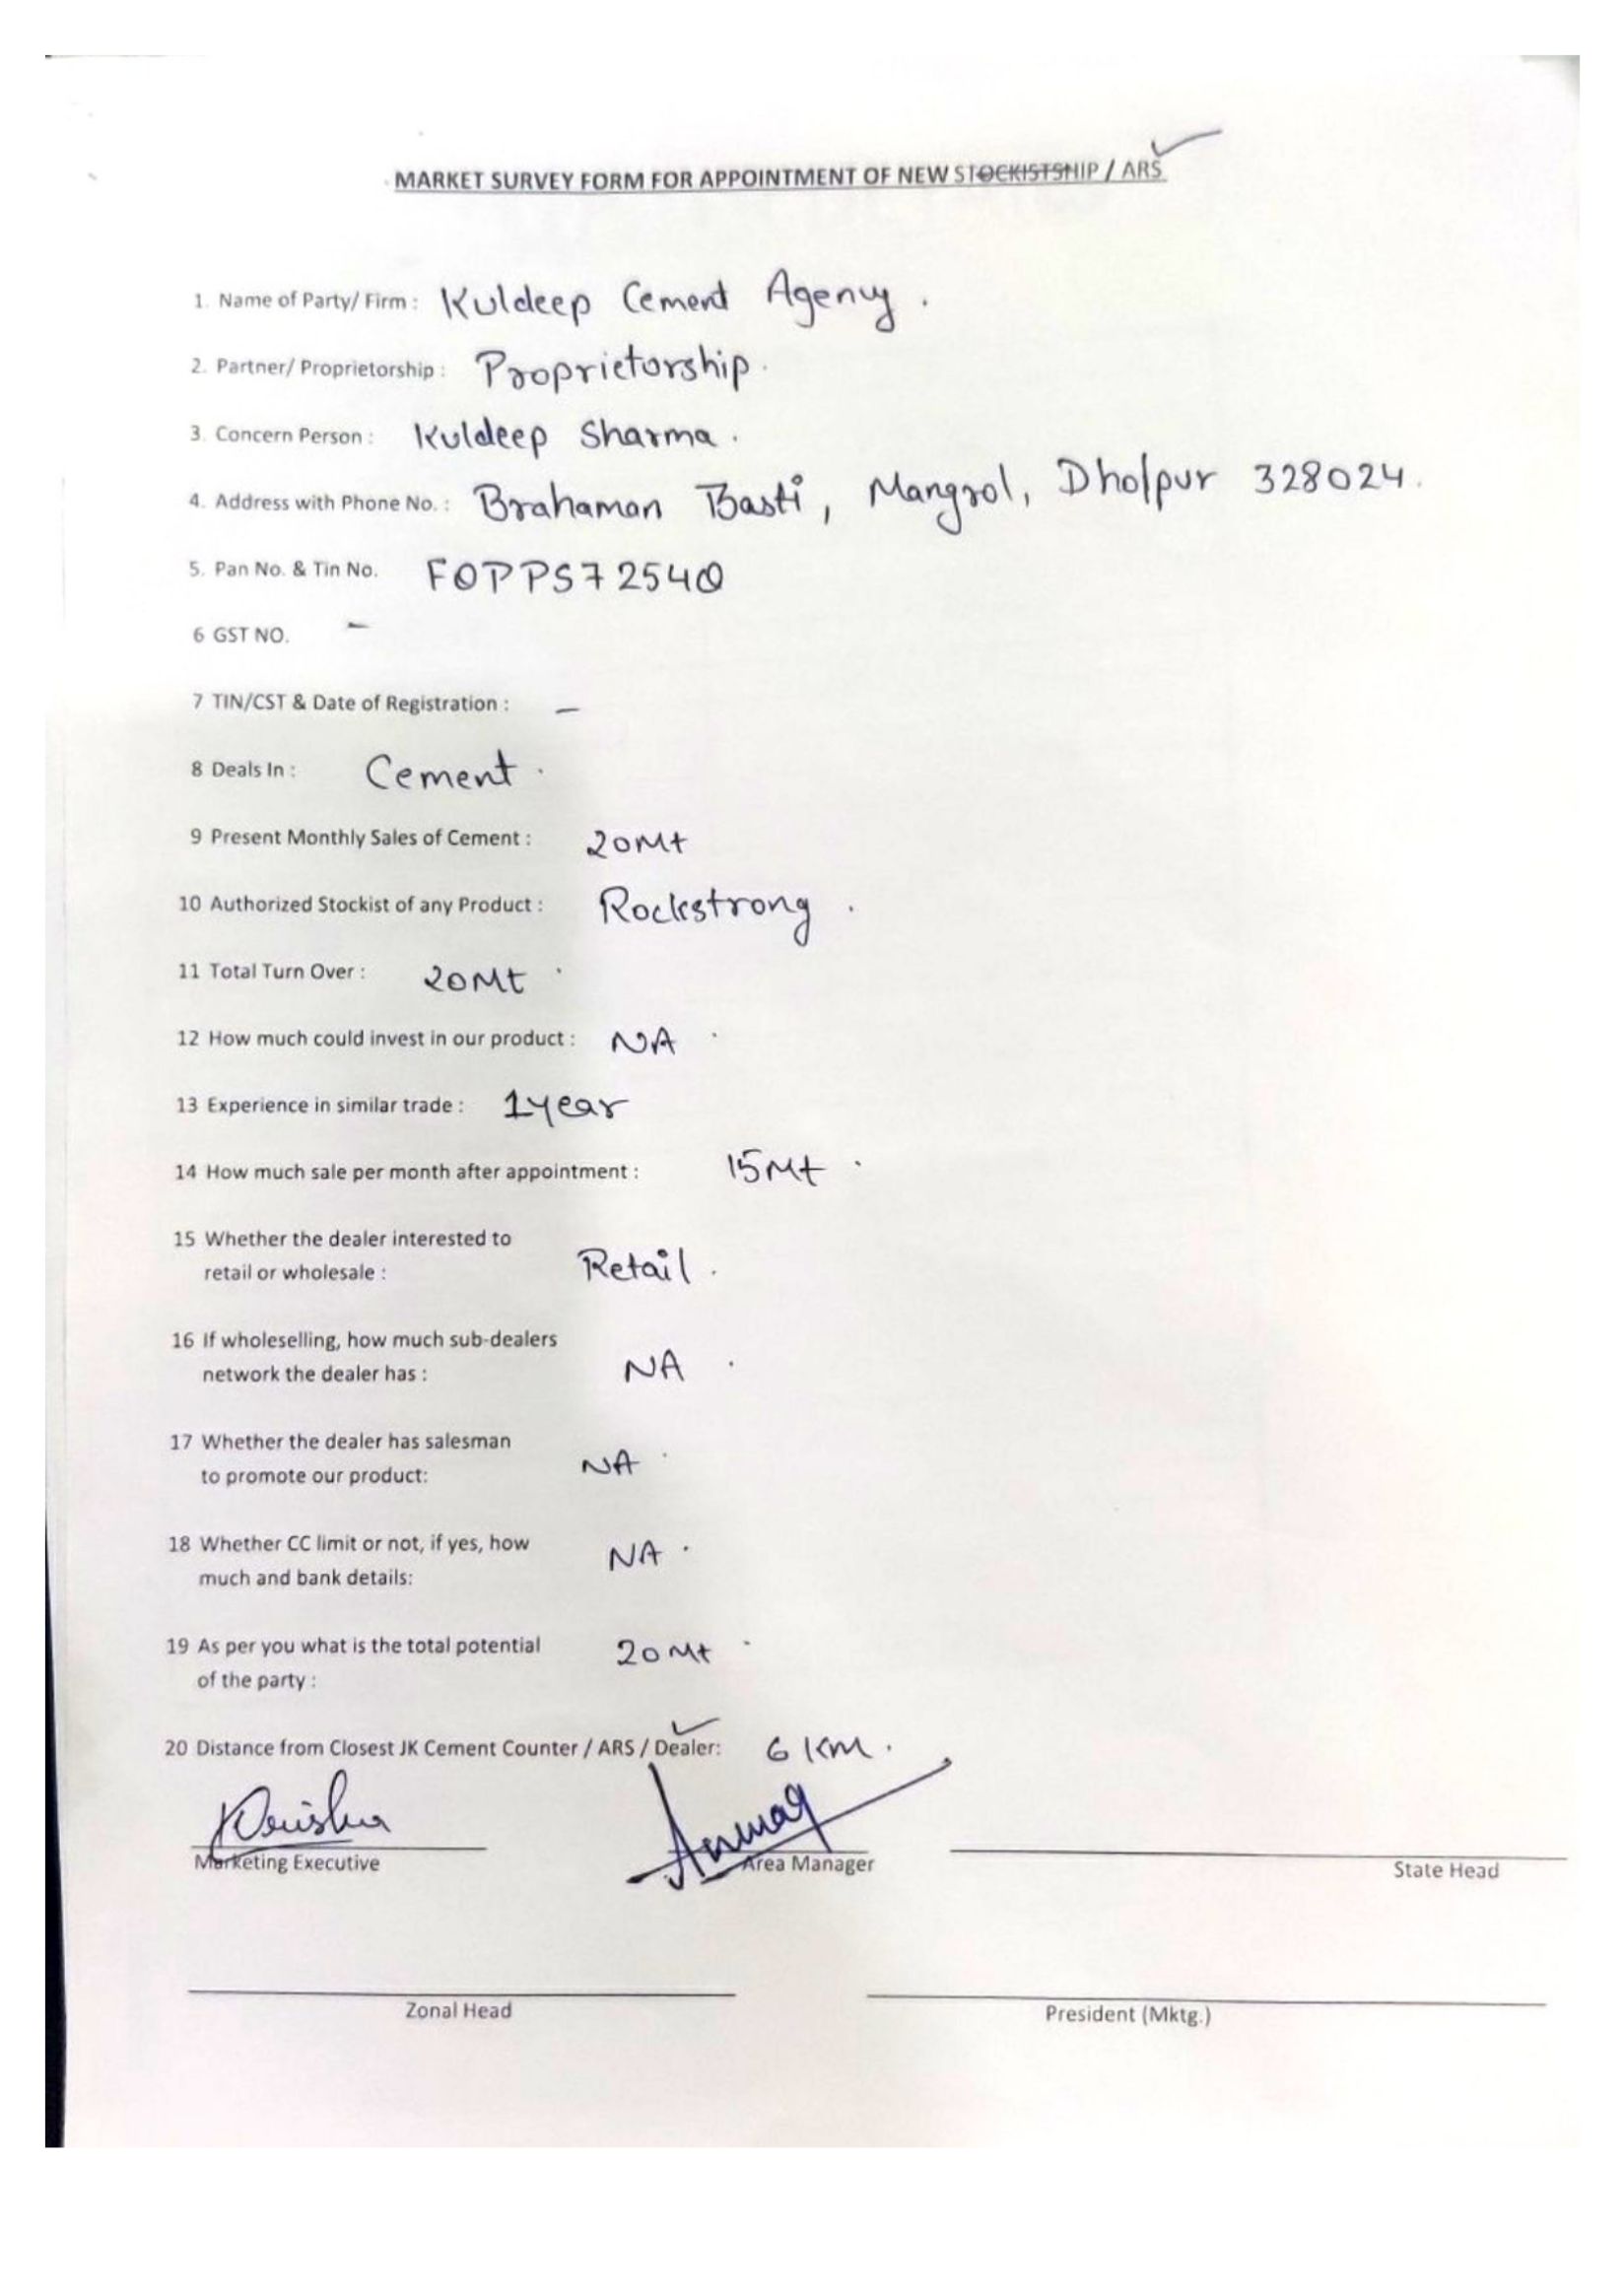 MARKET SURVEY FORM FOR APPOINTMENT OF NEW STOCKISTSHIP / ARS
1. Name of Party/ Firm : Kuldeep Cement Agency.
2. Partner/ Proprietorship : Proprietorship.
3. Concern Person : Kuldeep Sharma.
4. Address with Phone No. : Brahaman Basti, Mangrol, Dholpur 328024.
5. Pan No. & Tin No. FOPPS7254Q
6 GST NO. -
7 TIN/CST & Date of Registration : -
8 Deals In : Cement.
9 Present Monthly Sales of Cement : 20Mt
10 Authorized Stockist of any Product : Rockstrong.
11 Total Turn Over : 20Mt.
12 How much could invest in our product : NA.
13 Experience in similar trade : 1year
14 How much sale per month after appointment : 15Mt.
15 Whether the dealer interested to
retail or wholesale : Retail.
16 If wholeselling, how much sub-dealers
network the dealer has : NA.
17 Whether the dealer has salesman
to promote our product: NA.
18 Whether CC limit or not, if yes, how
much and bank details: NA.
19 As per you what is the total potential
of the party : 20Mt.
20 Distance from Closest JK Cement Counter / ARS / Dealer: 6 KM.
Marketing Executive Area Manager State Head
Zonal Head President (Mktg.)